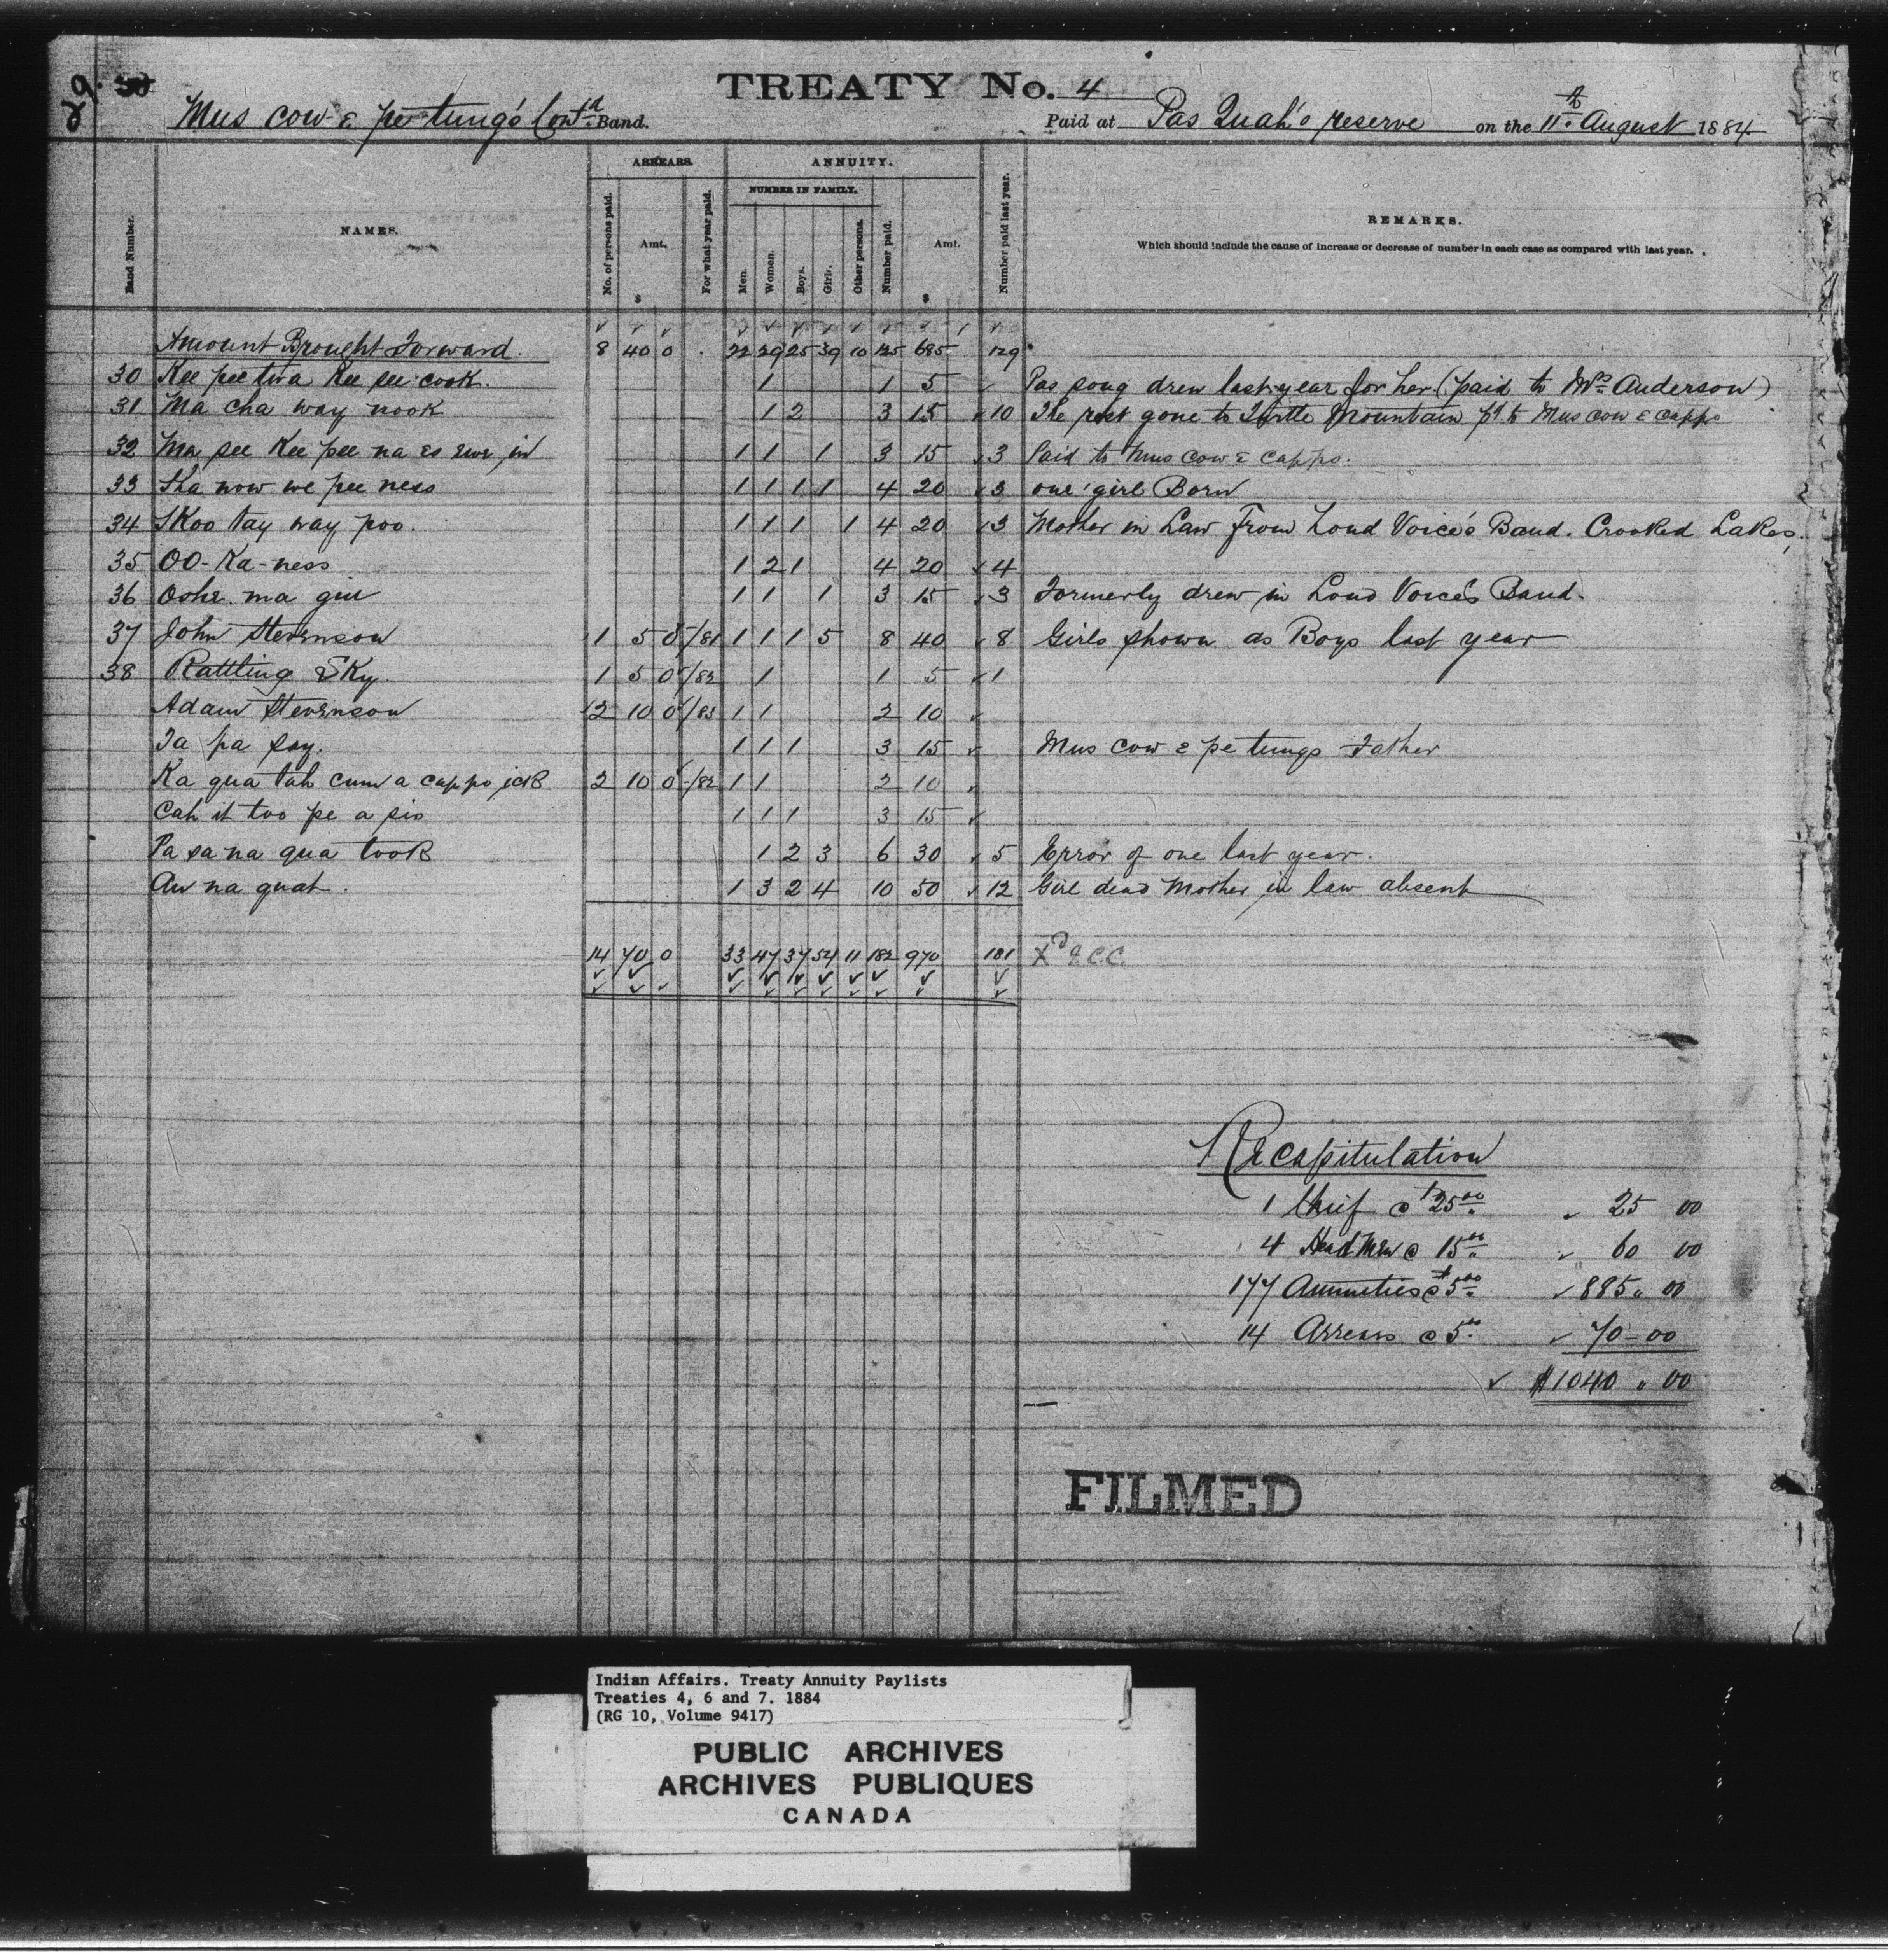 29. 30
TREATY No. 4
Mus cow & pe tung's Cont'd Band. Paid at Pas Quah's reserve on the 11th August 1884
Band Number. NAMES. ARREARS. No. of persons paid. Amt. $ For what year paid. ANNUITY. NUMBER IN FAMILY. Men. Women. Boys. Girls. Other persons. Number paid. Amt. $ Number paid last year. REMARKS.
Which should include the cause of increase or decrease of number in each case as compared with last year.
Amount Brought Forward. 8 40 0 22 29 25 39 10 125 685 129
30 Kee pee twa Kee see cook. 1 1 5 Pas song drew last year for her (paid to Mrs Anderson)
31 Ma cha way nook 1 2 3 15 10 The rest gone to Turtle Mountain pd. to Mus cow & capps
32 Ma see Kee pee na es ewe in 1 1 1 3 15 3 Paid to Mus cow & capps.
33 Sha now we pee ness 1 1 1 1 4 20 3 one girl Born
34 SKoo tay way poo. 1 1 1 1 4 20 3 Mother in Law From Loud Voice's Band. Crooked Lakes.
35 OO-Ka-ness 1 2 1 4 20 4
36 Oske ma gin 1 1 1 3 15 3 Formerly drew in Loud Voice's Band.
37 John Stevenson 1 5 0 /81 1 1 1 5 8 40 8 Girls shown as Boys last year
38 Rattling Sky. 1 5 0 /82 1 1 5 1
Adam Stevenson 2 10 0 /83 1 1 2 10
Ta pa say. 1 1 1 3 15 Mus cow & pe tungs Father
Ka qua tah cum a cappo ick 2 10 0 /82 1 1 2 10
Cah it too pe a sis 1 1 1 3 15
Pa sa na qua tooK 1 2 3 6 30 5 Error of one last year.
Au na quat. 1 3 2 4 10 50 12 Girl dead Mother in law absent
14 70 0 33 47 37 54 11 182 970 181 Xd J.C.C.
Recapitulation
1 Chief @ $25.00 25 00
4 Head Men @ 15.00 60 00
177 Annuities @ $5.00 885 00
14 Arrears @ 5.00 70-00
$1040 00
FILMED
Indian Affairs. Treaty Annuity Paylists
Treaties 4, 6 and 7. 1884
(RG 10, Volume 9417)
PUBLIC ARCHIVES
ARCHIVES PUBLIQUES
CANADA